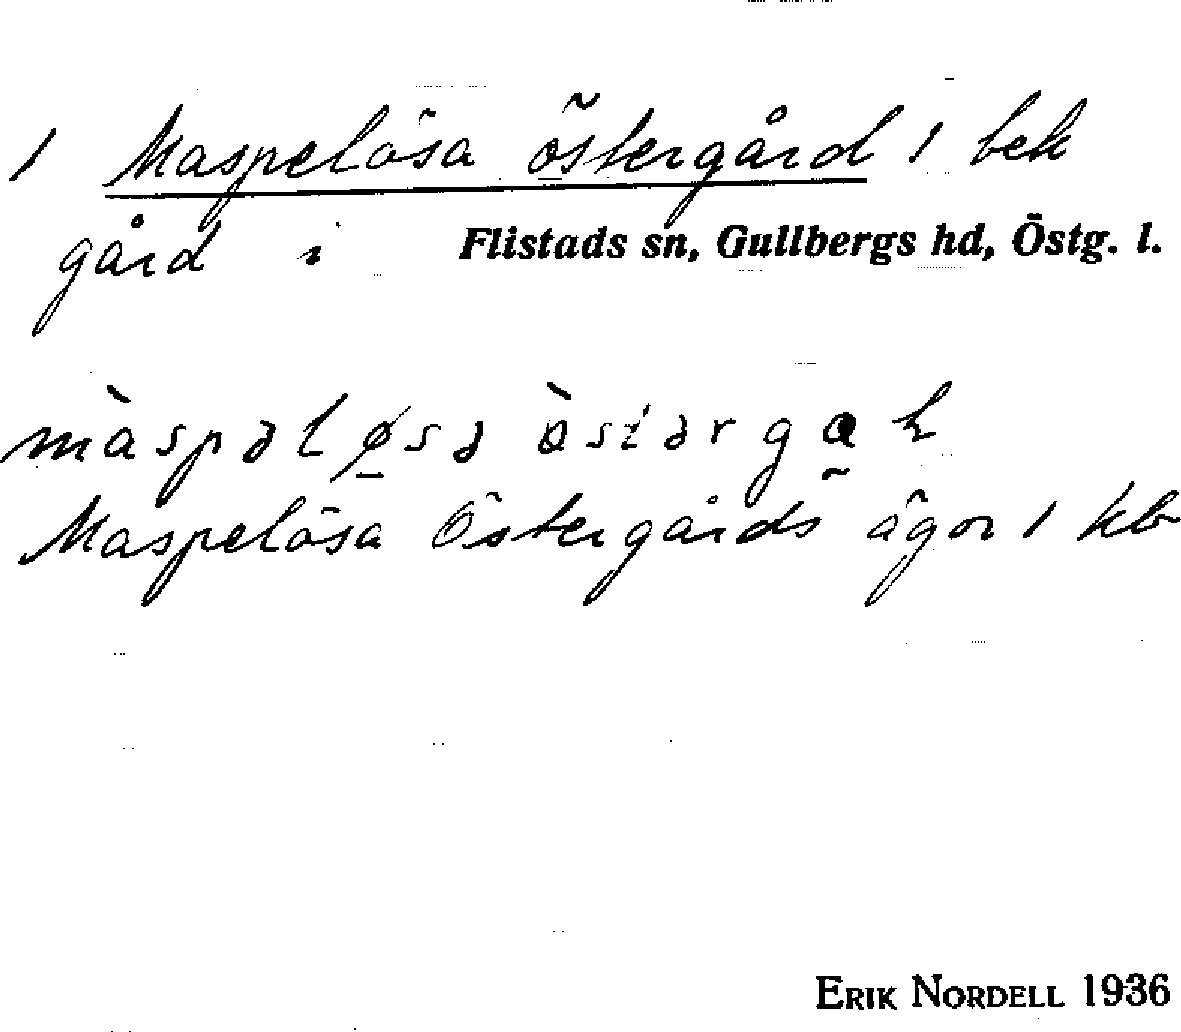 1 Maspelösa östergård 1 bek
gård i Flistads sn, Gullbergs hd, Östg. l.
Maspelösa Östergårds ägor 1 kb
ERIK NORDELL 1936